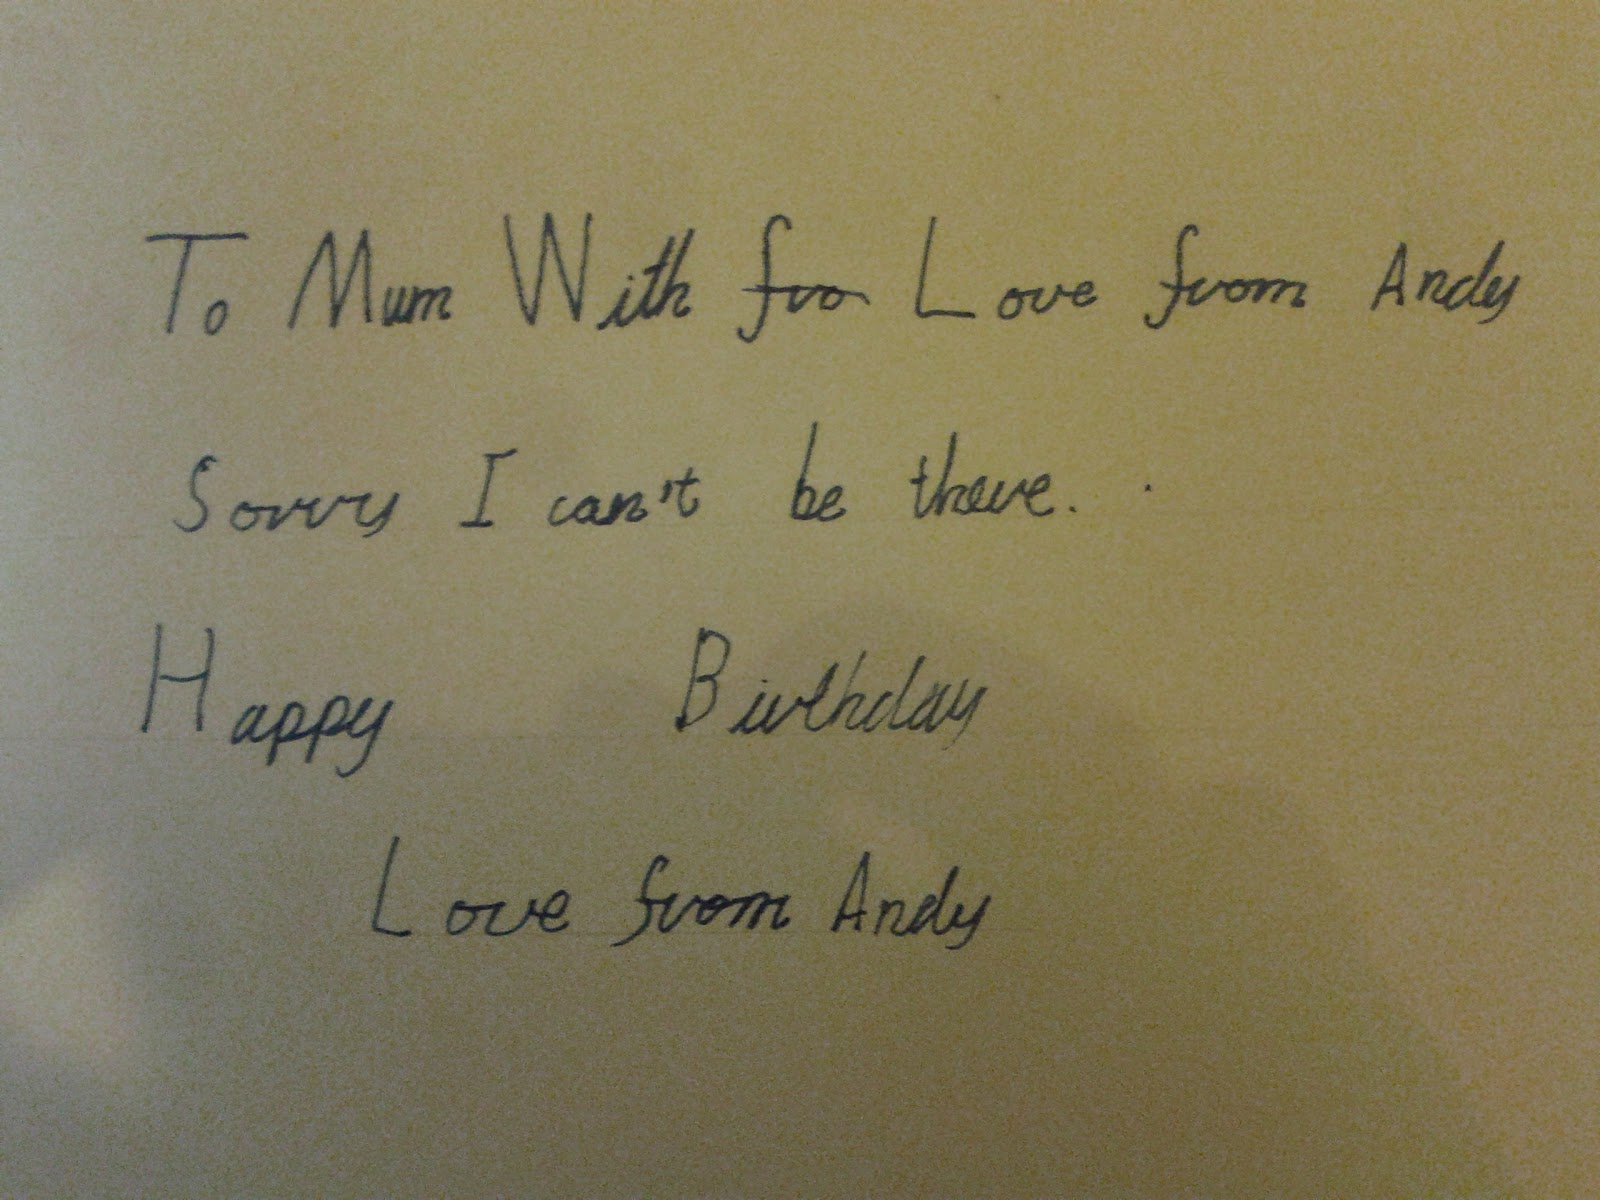 To Mum With fro Love from Andy
Sorry I can't be there.
Happy Birthday
Love from Andy